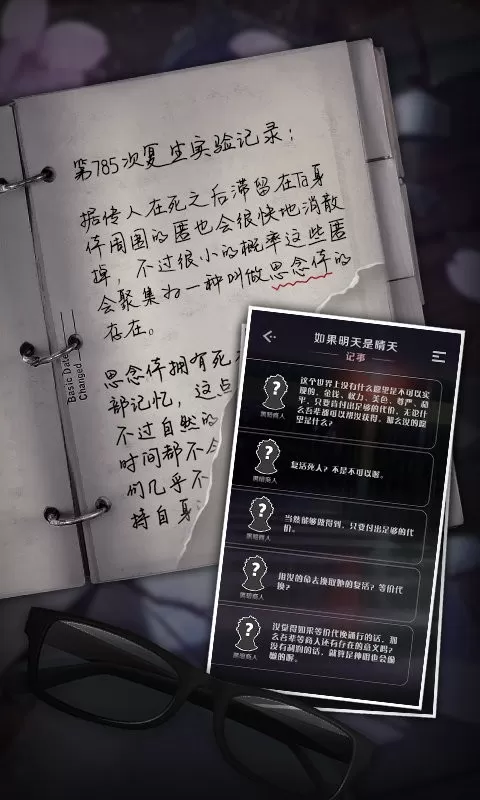 第785次复生实验记录：
据传人在死之后滞留在Ta身
体周围的匿也会很快地消散
掉，不过很小的概率这些匿
会聚集为一种叫做思念体的
存在。
思念体拥有死
部记忆，这点
不过自然的
时间都不
们几乎不
持自身
Basic Date
Changed
如果明天是晴天
记事
这个世界上没有什么愿望是不可以实
现的。金钱、权力、美色、尊严、和
平，只要肯付出足够的代价，无论什
么吾辈都可以帮汝获得。那么汝的愿
望是什么？
黑暗商人
复活死人？不是不可以喔。
黑暗商人
当然能够做得到，只要付出足够的代
价。
黑暗商人
用汝的命去换取她的复活？等价代
换？
黑暗商人
汝觉得如果等价代换通行的话，那
么吾辈等商人还有存在的意义吗？
没有利润的话，就算是神明也会偷
懒的喔。
黑暗商人